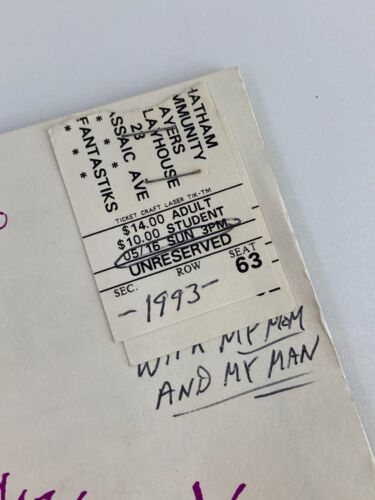 HATHAM
MMUNITY
AYERS
LAYHOUSE
23
SSAIC AVE
* * * *
FANTASTIKS
TICKET CRAFT LASER TIK-TM
$14.00 ADULT
$10.00 STUDENT
05/16 SUN 3PM
UNRESERVED
SEC. ROW SEAT
63
-1993-
WITH MY MOM
AND MY MAN